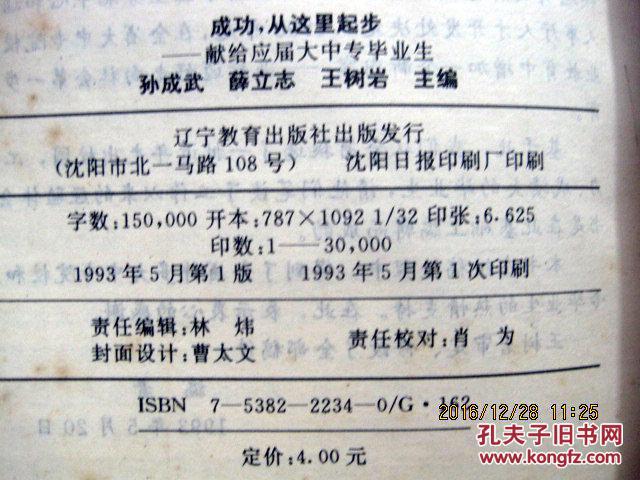 成功，从这里起步
——献给应届大中专毕业生
孙成武 薛立志 王树岩 主编
辽宁教育出版社出版发行
（沈阳市北一马路108号） 沈阳日报印刷厂印刷
字数：150,000 开本：787×1092 1/32 印张：6.625
印数：1——30,000
1993年5月第1版 1993年5月第1次印刷
责任编辑：林 炜 责任校对：肖 为
封面设计：曹太文
ISBN 7-5382-2234-0/G·162
2016/12/28 11:25
定价：4.00元
孔夫子旧书网
www.kongfz.com